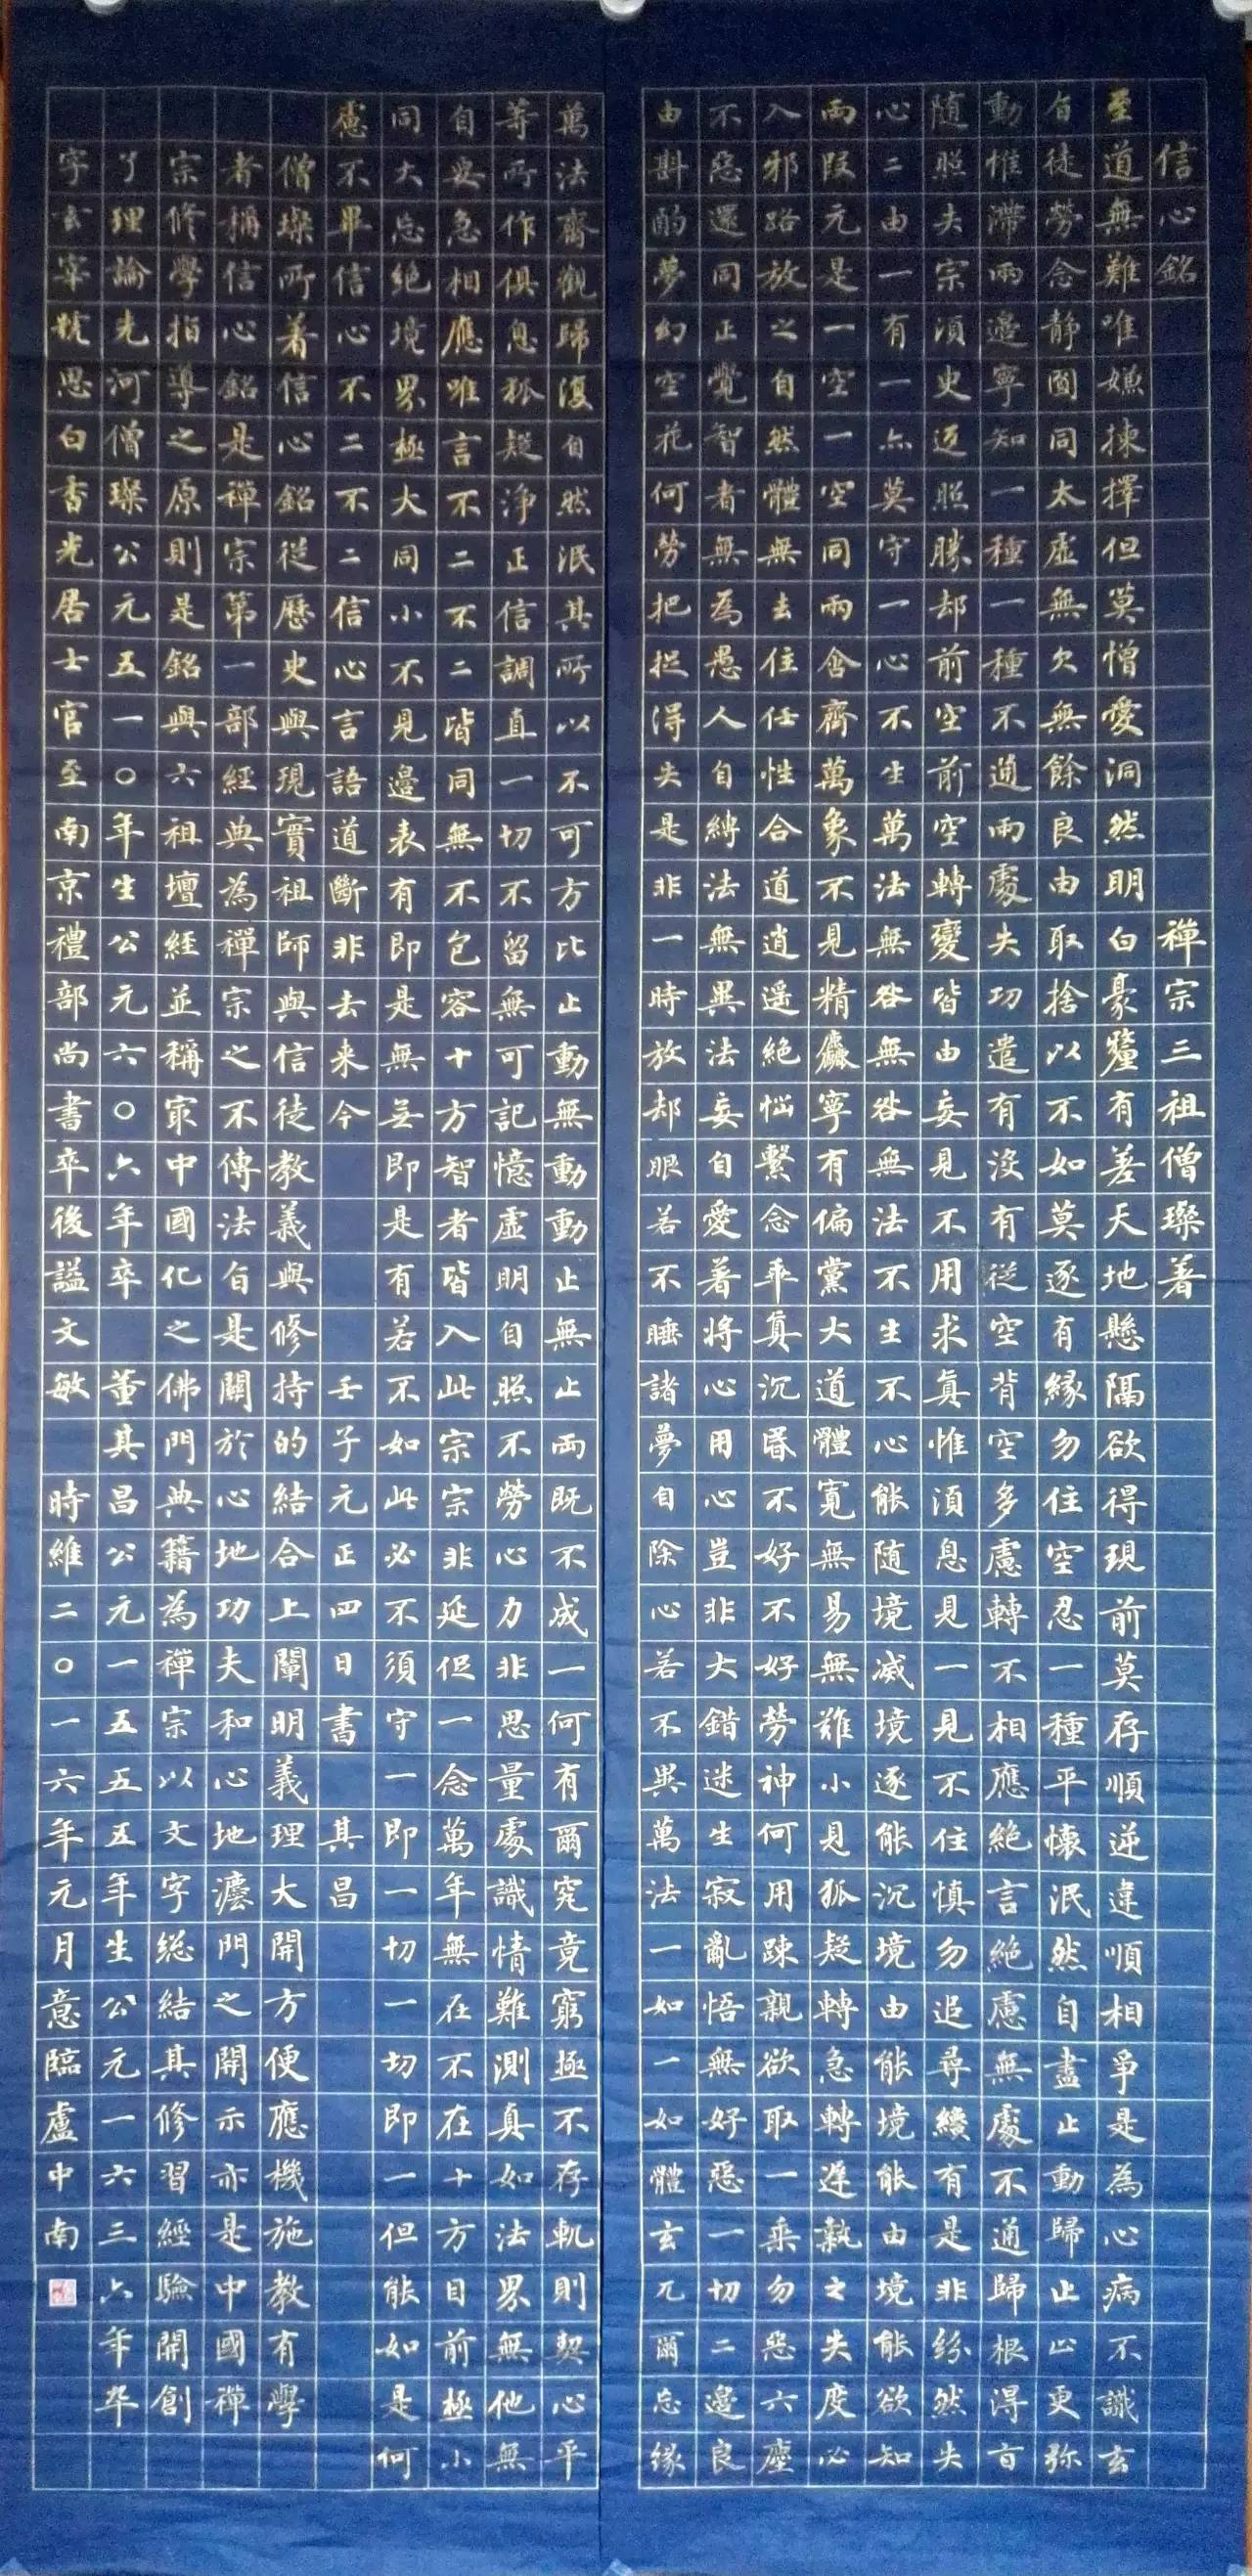 信心銘 禪宗三祖僧璨著
至道無難唯嫌揀擇但莫憎愛洞然明白豪釐有差天地懸隔欲得現前莫存順逆違順相爭是為心病不識玄
旨徒勞念静圓同太虛無欠無餘良由取捨以不如莫逐有緣勿住空忍一種平懷泯然自盡止動歸止止更弥
動惟滯兩邊寧知一種一種不通兩處失功遣有沒有從空背空多慮轉不相應絶言絶慮無處不通歸根得旨
隨照失宗須臾返照勝却前空前空轉變皆由妄見不用求真惟須息見一見不住慎勿追尋纔有是非紛然失
心二由一有一亦莫守一心不生萬法無咎無咎無法不生不心能随境滅境逐能沉境由能境能由境能欲知
兩段元是一空一空同兩含齊萬象不見精麤寧有偏黨大道體寬無易無難小見狐疑轉急轉遲執之失度必
入邪路放之自然體無去住任性合道逍遥絶惱繫念乖真沉昏不好不好勞神何用踈親欲取一乘勿惡六塵
不惡還同正覺智者無為愚人自縛法無異法妄自愛著將心用心豈非大錯迷生寂亂悟無好惡一切二邊良
由斟酌夢幻空花何勞把捉得失是非一時放却眼若不睡諸夢自除心若不異萬法一如一如體玄兀爾忘緣
萬法齊觀歸復自然泯其所以不可方比止動無動動止無止兩既不成一何有爾究竟窮極不存軌則契心平
等所作俱息狐疑淨正信調直一切不留無可記憶虛明自照不勞心力非思量處識情難測真如法界無他無
自要急相應唯言不二不二皆同無不包容十方智者皆入此宗宗非延促一念萬年無在不在十方目前極小
同大忘絶境界極大同小不見邊表有即是無無即是有若不如此必不須守一即一切一切即一但能如是何
慮不畢信心不二不二信心言語道斷非去来今 壬子元正四日書 其昌
僧璨所著信心銘從歷史與現實祖師與信徒教義與修持的結合上闡明義理大開方便應機施教有學
者稱信心銘是禪宗第一部經典為禪宗之不傳法自是關於心地功夫和心地瀍門之開示亦是中國禪
宗修學指導之原則是銘與六祖壇經並稱㝡中國化之佛門典籍為禪宗以文字総結其修習經驗開創
了理論先河僧璨公元五一〇年生公元六〇六年卒 董其昌公元一五五五年生公元一六三六年卒
字玄宰號思白香光居士官至南京禮部尚書卒後謚文敏 時維二〇一六年元月意臨盧中南